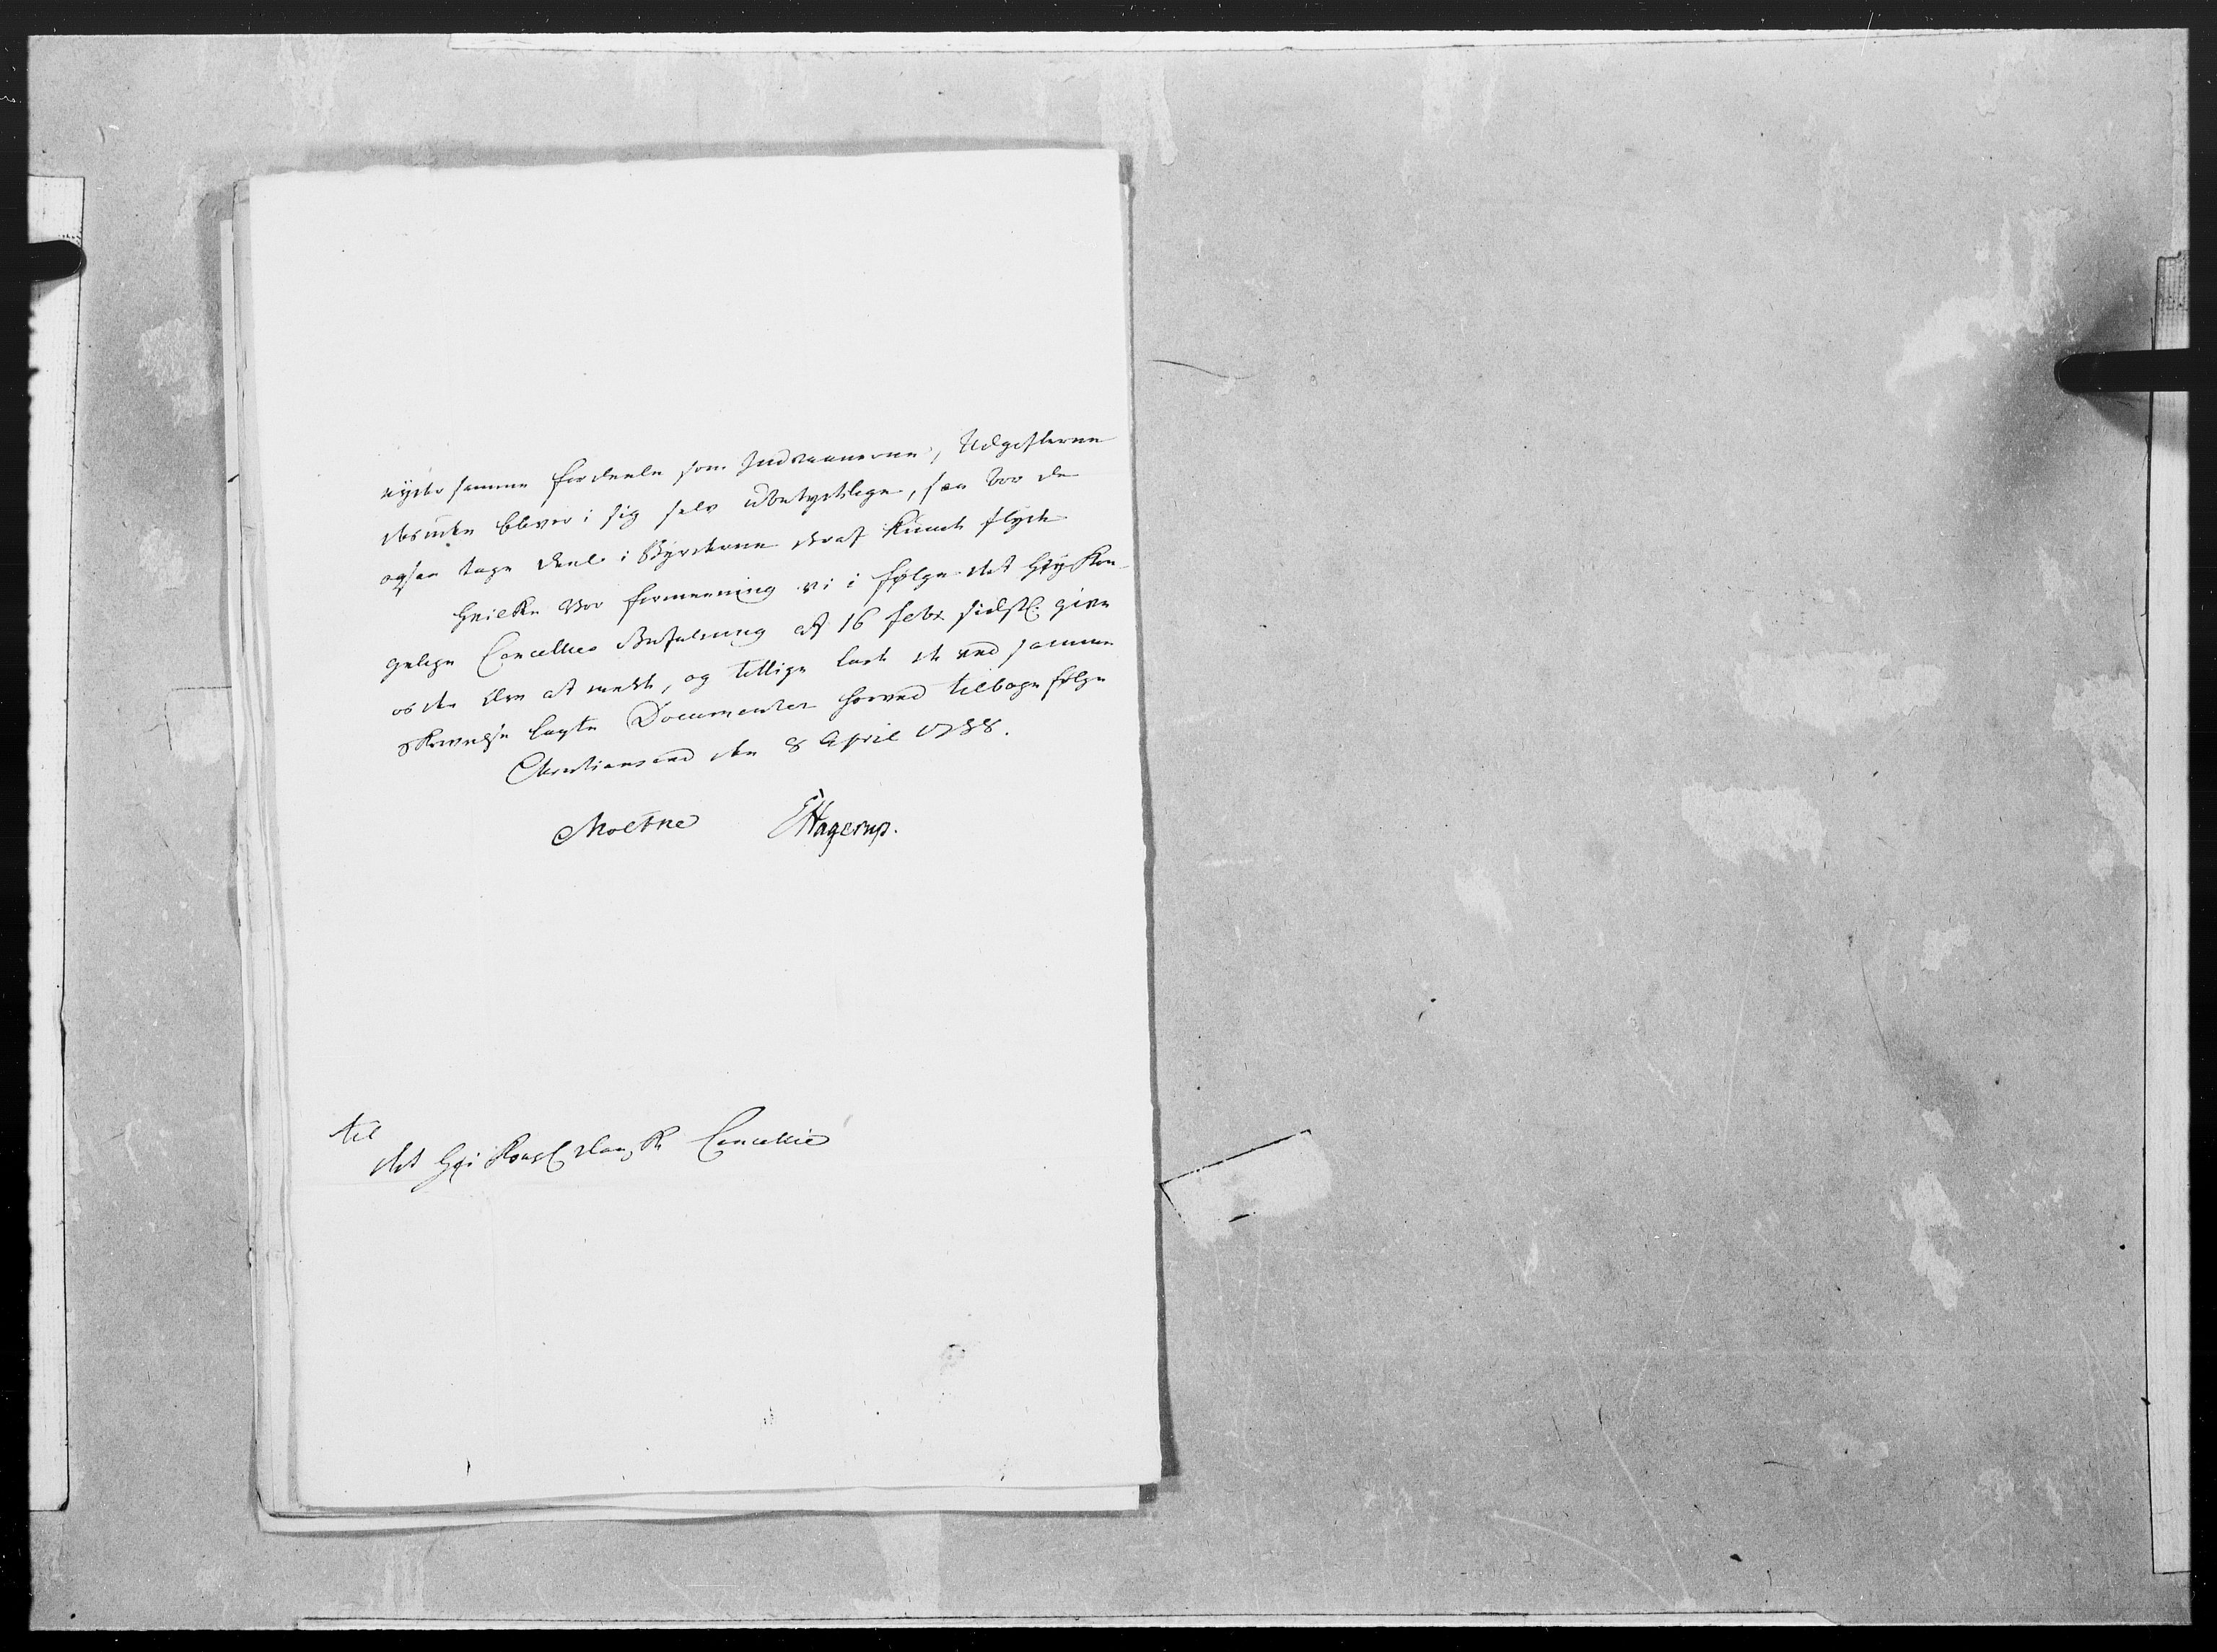 nyder samme fordeele som Indvaanerne, Udgifterne
desuden bliver i sig selv ubetydelige, saa bør de
ogsaa tage deel i Byrderne deraf kunde flyde
Hvilken Vor formeening vi i følge det Høy Kon-
gelige Cancellies Befalning af 16 febr. sidstl: give
os den Ære at melde, og tillige lade de ved samme
skrivelse lagte Documenter herved tilbage følge
Christiansand den 8 April 1788.
Moltke EHagerup.
til
det Høi Kongl. danske Cancellie